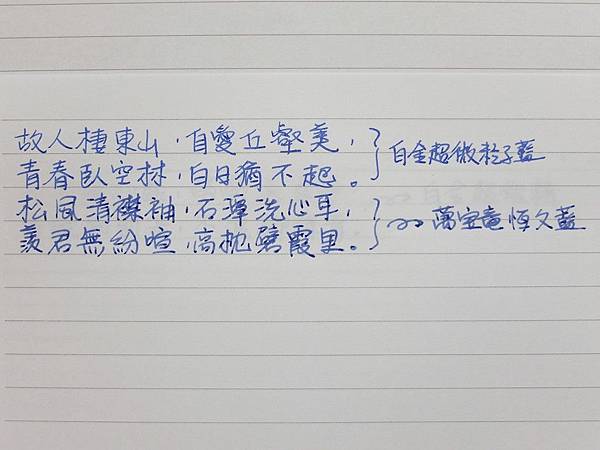 故人棲東山，自愛丘壑美，
青春臥空林，白日猶不起。
白金超微粒子藍
松風清襟袖，石潭洗心耳，
羨君無紛喧，高枕碧霞里。
萬宝竜恆久藍